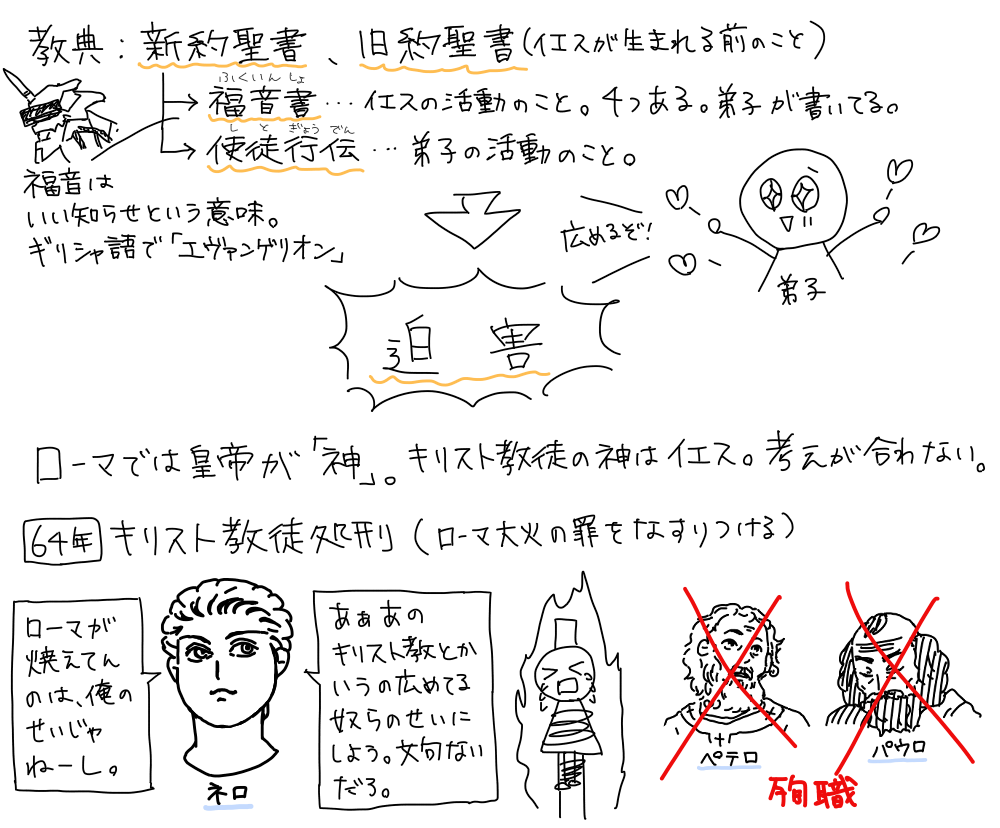 教典：新約聖書、旧約聖書（イエスが生まれる前のこと）
ふくいんしょ
福音書…イエスの活動のこと。4つある。弟子が書いてる。
しとぎょうでん
使徒行伝…弟子の活動のこと。
福音は
いい知らせという意味。
ギリシャ語で「エヴァンゲリオン」
広めるぞ！
弟子
迫害
ローマでは皇帝が「神」。キリスト教徒の神はイエス。考えが合わない。
64年 キリスト教徒処刑（ローマ大火の罪をなすりつける）
ローマが
焼えてん
のは、俺の
せいじゃ
ねーし。
ネロ
あぁあの
キリスト教とか
いうの広めてる
奴らのせいに
しよう。文句ない
だろ。
ペテロ
パウロ
殉職